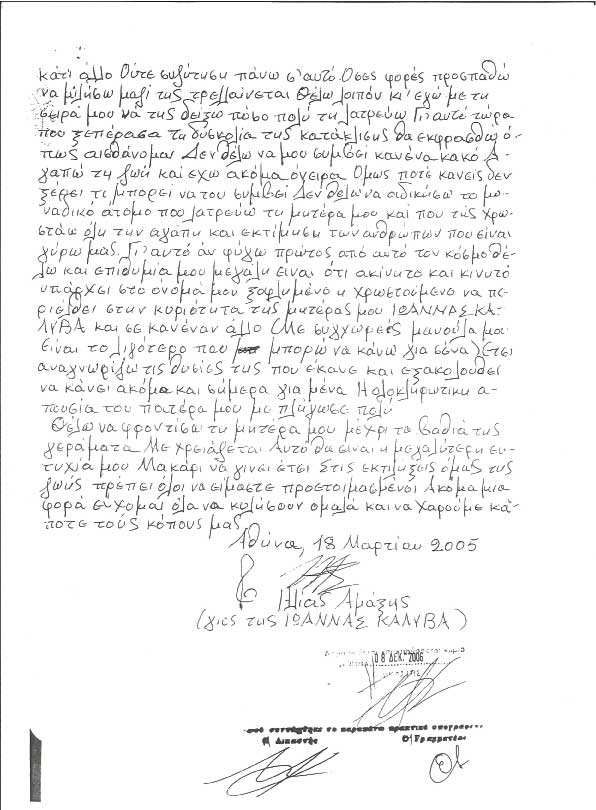 κάτι άλλο Ούτε συζύτηση πάνω σ' αυτό. Όσες φορές προσπαθώ
να μιλήσω μαζί της τρελλαίνεται Θέλω λοιπόν κι' εγώ με τη
σειρά μου να της δείξω πόσο πολύ τη λατρεύω Γι' αυτό τώρα
που ξεπέρασα τη δυσκολία της κατάκλισης θα εκφρασθώ ό-
πως αισθάνομαι Δεν θέλω να μου συμβεί κανένα κακό Α-
γαπώ τη ζωή και έχω ακόμα όνειρα Όμως ποτέ κανείς δεν
ξέρει τι μπορεί να του συμβεί Δεν θέλω να αδικήσω το μο-
ναδικό άτομο που λατρεύω τη μητέρα μου και που της χρω-
στάω όλη την αγάπη και εκτίμηση των ανθρώπων που είναι
γύρω μας. Γι' αυτό αν φύγω πρώτος από αυτό τον κόσμο θέ-
λω και επιθυμία μου μεγάλη είναι ότι ακίνητο και κινητό
υπάρχει στο όνομά μου ξοφλημένο ή χρωστούμενο να πε-
ριέλθει στην κυριότητα της μητέρας μου ΙΩΑΝΝΑΣ ΚΑ-
ΛΥΒΑ και σε κανέναν άλλο (Με συγχωρείς μανούλα μου
είναι το λιγότερο που μπορώ να κάνω για σένα) Έτσι
αναγνωρίζω τις θυσίες της που έκανε και εξακολουθεί
να κάνει ακόμα και σήμερα για μένα Η ολοκληρωτική α-
πουσία του πατέρα μου με πλήγωσε πολύ
Θέλω να φροντίσω τη μητέρα μου μέχρι τα βαθιά της
γεράματα. Με χρειάζεται Αυτό θα είναι η μεγαλύτερη ευ-
τυχία μου Μακάρι να γίνει έτσι Στις εκπλήξεις όμως της
ζωής πρέπει όλοι να είμαστε προετοιμασμένοι Ακόμα μια
φορά εύχομαι όλα να κυλήσουν ομαλά και να χαρούμε κά-
ποτε τούς κόπους μας
Αθήνα, 18 Μαρτίου 2005
Ηλίας Αμάξης
(γιός της ΙΩΑΝΝΑΣ ΚΑΛΥΒΑ)
08 ΔΕΚ. 2006
συντάχθηκε το παρακάτω πρακτικό
Δικαστής Ο Γραμματέας